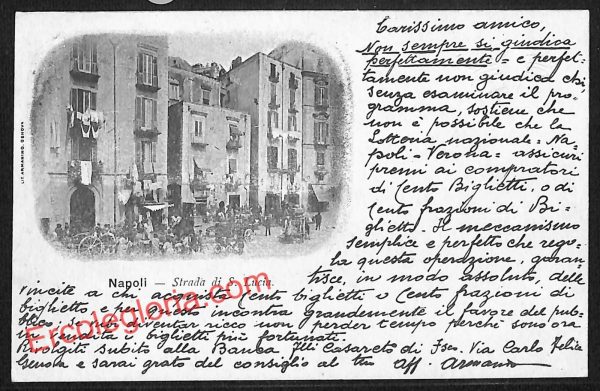 Carissimo amico,
Non sempre si giudica
perfettamente = e perfet-
tamente non giudica chi
senza esaminare il pro-
gramma, sostiene che
non è possibile che la
Lotteria nazionale = Na-
poli - Verona = assicuri
premi ai compratori
di Cento Biglietti, o di
Cento frazioni di Bi=
glietto. Il meccanismo
semplice e perfetto che rego-
la questa operazione, garan-
tisce, in modo assoluto, delle
vincite a chi acquista Cento biglietti o Cento frazioni di
biglietto e perciò incontra grandemente il favore del pub-
blico, diventar ricco non perder tempo perchè sono ora
in vendita i biglietti più fortunati.
Rivolgiti subito alla Banca Flli Casareto di Fsco. Via Carlo Felice
Genova e sarai grato del consiglio al tuo aff. Armano
LIT. ARMANINO, GENOVA
Napoli — Strada di S. Lucia.
Ercolegloria.com